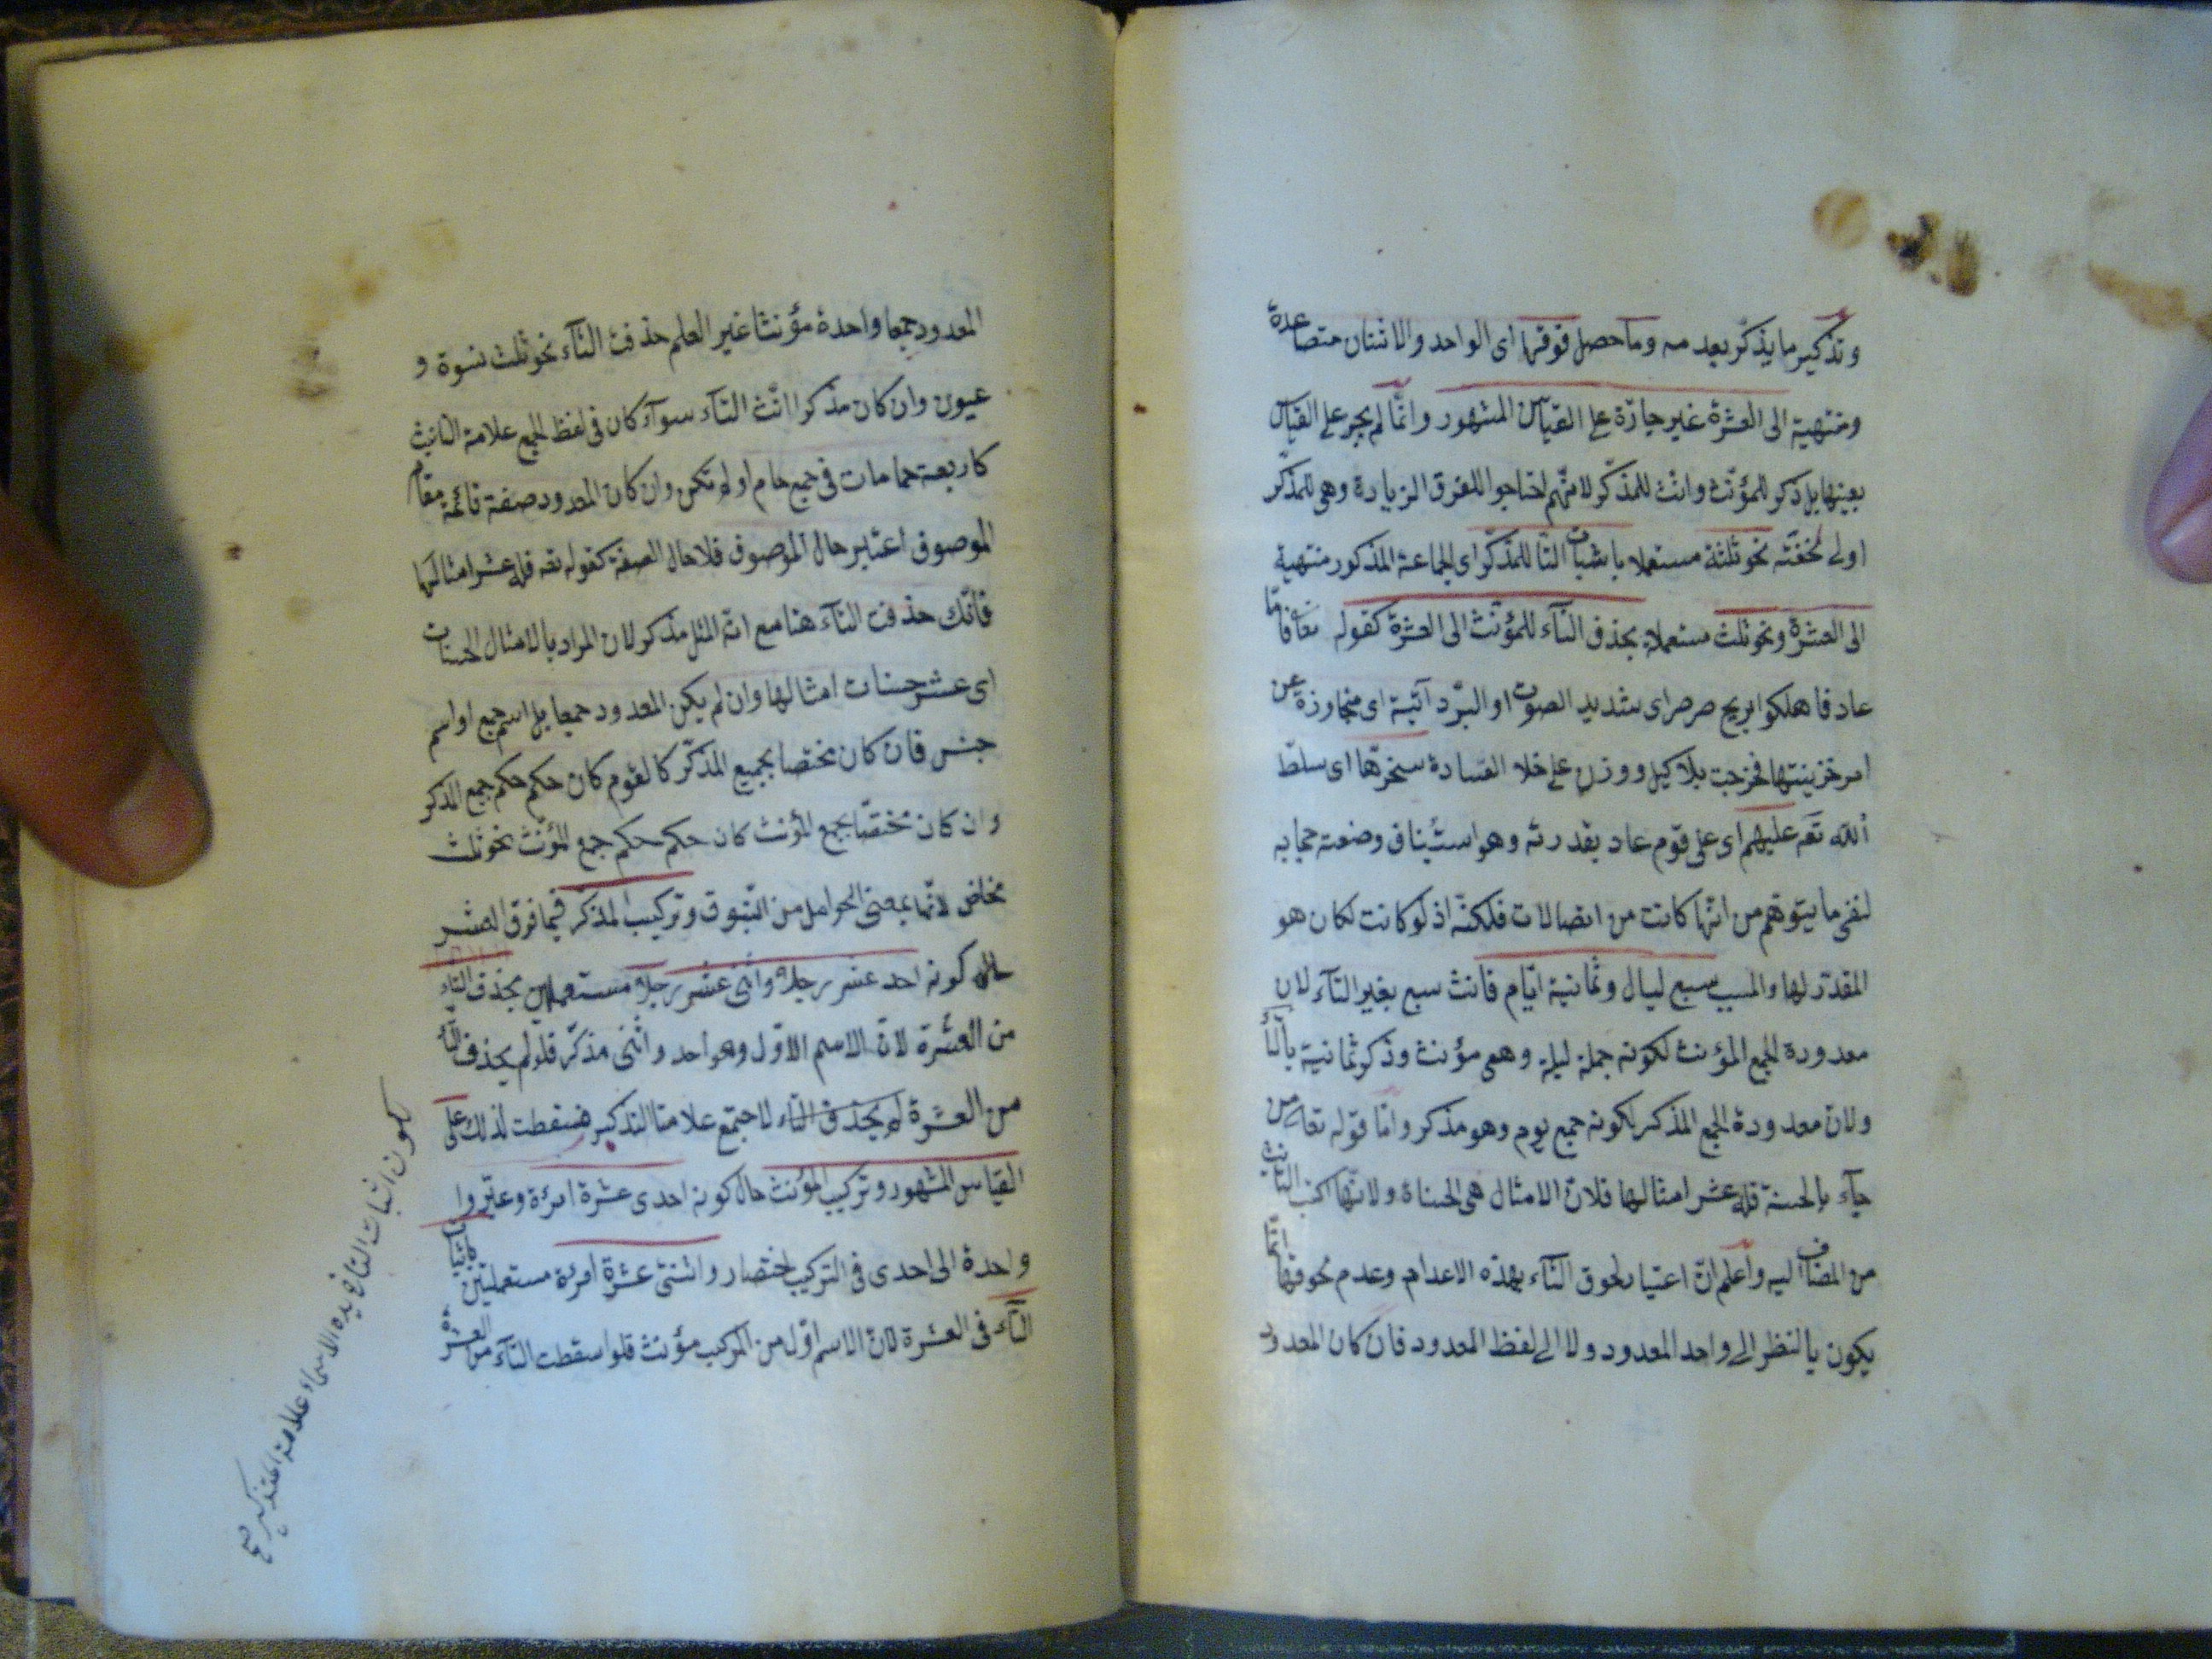 وتذكير ما يذكر بعد مه وما حصل فوقها اى الواحد والاثنان متصاعدة
ومنتهية الى العشرة غير جارّة على القياس المشهور وانّما لم يجر على القياس
بعينها بل ذكر للمؤنّث وانّث للمذكّر لانّهم احتاجوا للفرق الزيادة وهى للمذكّر
اولى لخفّته نحو ثلثة مستعملا باثبات التا للمذكّر اى لجماعة المذكور منتهية
الى العشرة ونحو ثلث مستعملا بحذف التآء للمؤنّث الى العشرة كقوله تعا فامّا
عاد فاهلكوا بريح صرصر اى شديد الصوت او البرد آتية اى متجاوزة عن
امر خزينتها فخرجت بلا كيل ووزن على خلا العادة سخرها اى سلّط
الله تعه عليهم اى على قوم عاد بقدرته وهو استيناف وضعته حجابه
لنفى ما يتوهّم من انّها كانت من اتصالات فلكيّة اذ لو كانت لكان هو
المقدّر لها والمسبب سبع ليال وثمانية ايّام فانث سبع بغير التآء لان
معدودة الجمع المؤنث لكونه جملة ليلة وهى مؤنث وذكر ثمانية بالتآ
ولانّ معدودة الجمع المذكر لكونه جميع يوم وهو مذكر وامّا قوله تعا من
جآء بالحسنة فله عشر امثالها فلانّ الامثال هى الحسناة ولانّها اكتسب التانيث
من المضاف اليه واعلم انّ اعتبار لحوق التآء بهذه الاعدام وعدم لحوقها انّما
يكون بالنظر الى واحد المعدود ولا الى لفظ المعدود فان كان المعدود
المعدود جمعا واحدة مؤنثا غير العلم حذفت التآء نحو ثلث نسوة و
عيون وان كان مذكرا انّث التآء سوآء كان فى لفظ الجمع علامة التانيث
كاربعة حمامات فى جمع حمام اولم تكن وان كان المعدود صفة قائمة مقام
الموصوف اعتبر حال الموصوف فلا حال الصفة كقوله تعه فله عشر امثالها
فانّك حذفت التآء هنا مع انّه المثل مذكر لان المراد بالامثال الحسنات
اى عشر حسنات امثالها وان لم يكن المعدود جمعا بل اسم جمع او اسم
جنس فان كان مختصا بجميع المذكّر كالقوم كان حكم حكم جمع المذكر
وان كان مختصّا بجمع المؤنث كان حكم حكم جمع المؤنث نحو ثلث
مخاض لانّها بمعنى الحوامل من النّوق وتركيب المذكر فيما فوق العشر
حال كونه احد عشر رجلا واثنى عشر رجلا مستعملين بحذف التاء
من العشرة لانّ الاسم الاوّل وهو احد واثنى مذكّر فلو لم يحذف التآء
من العشرة لم يحذف التاء لاجتمع علامتا التذكير فسقطت لذلك على
القياس المشهور وتركيب المؤنث حال كونه احدى عشرة امرئة وغيّروا
واحدة الى احدى فى التركيب اختصار واثنتى عشرة امرئة مستعملتين باثبات
التآء فى العشرة لانّ الاسم اوّل من المركب مؤنث فلو اسقطت التاء من العشرة
لكون اثبات التا فى هذه الاسماء علامة التذكير صح